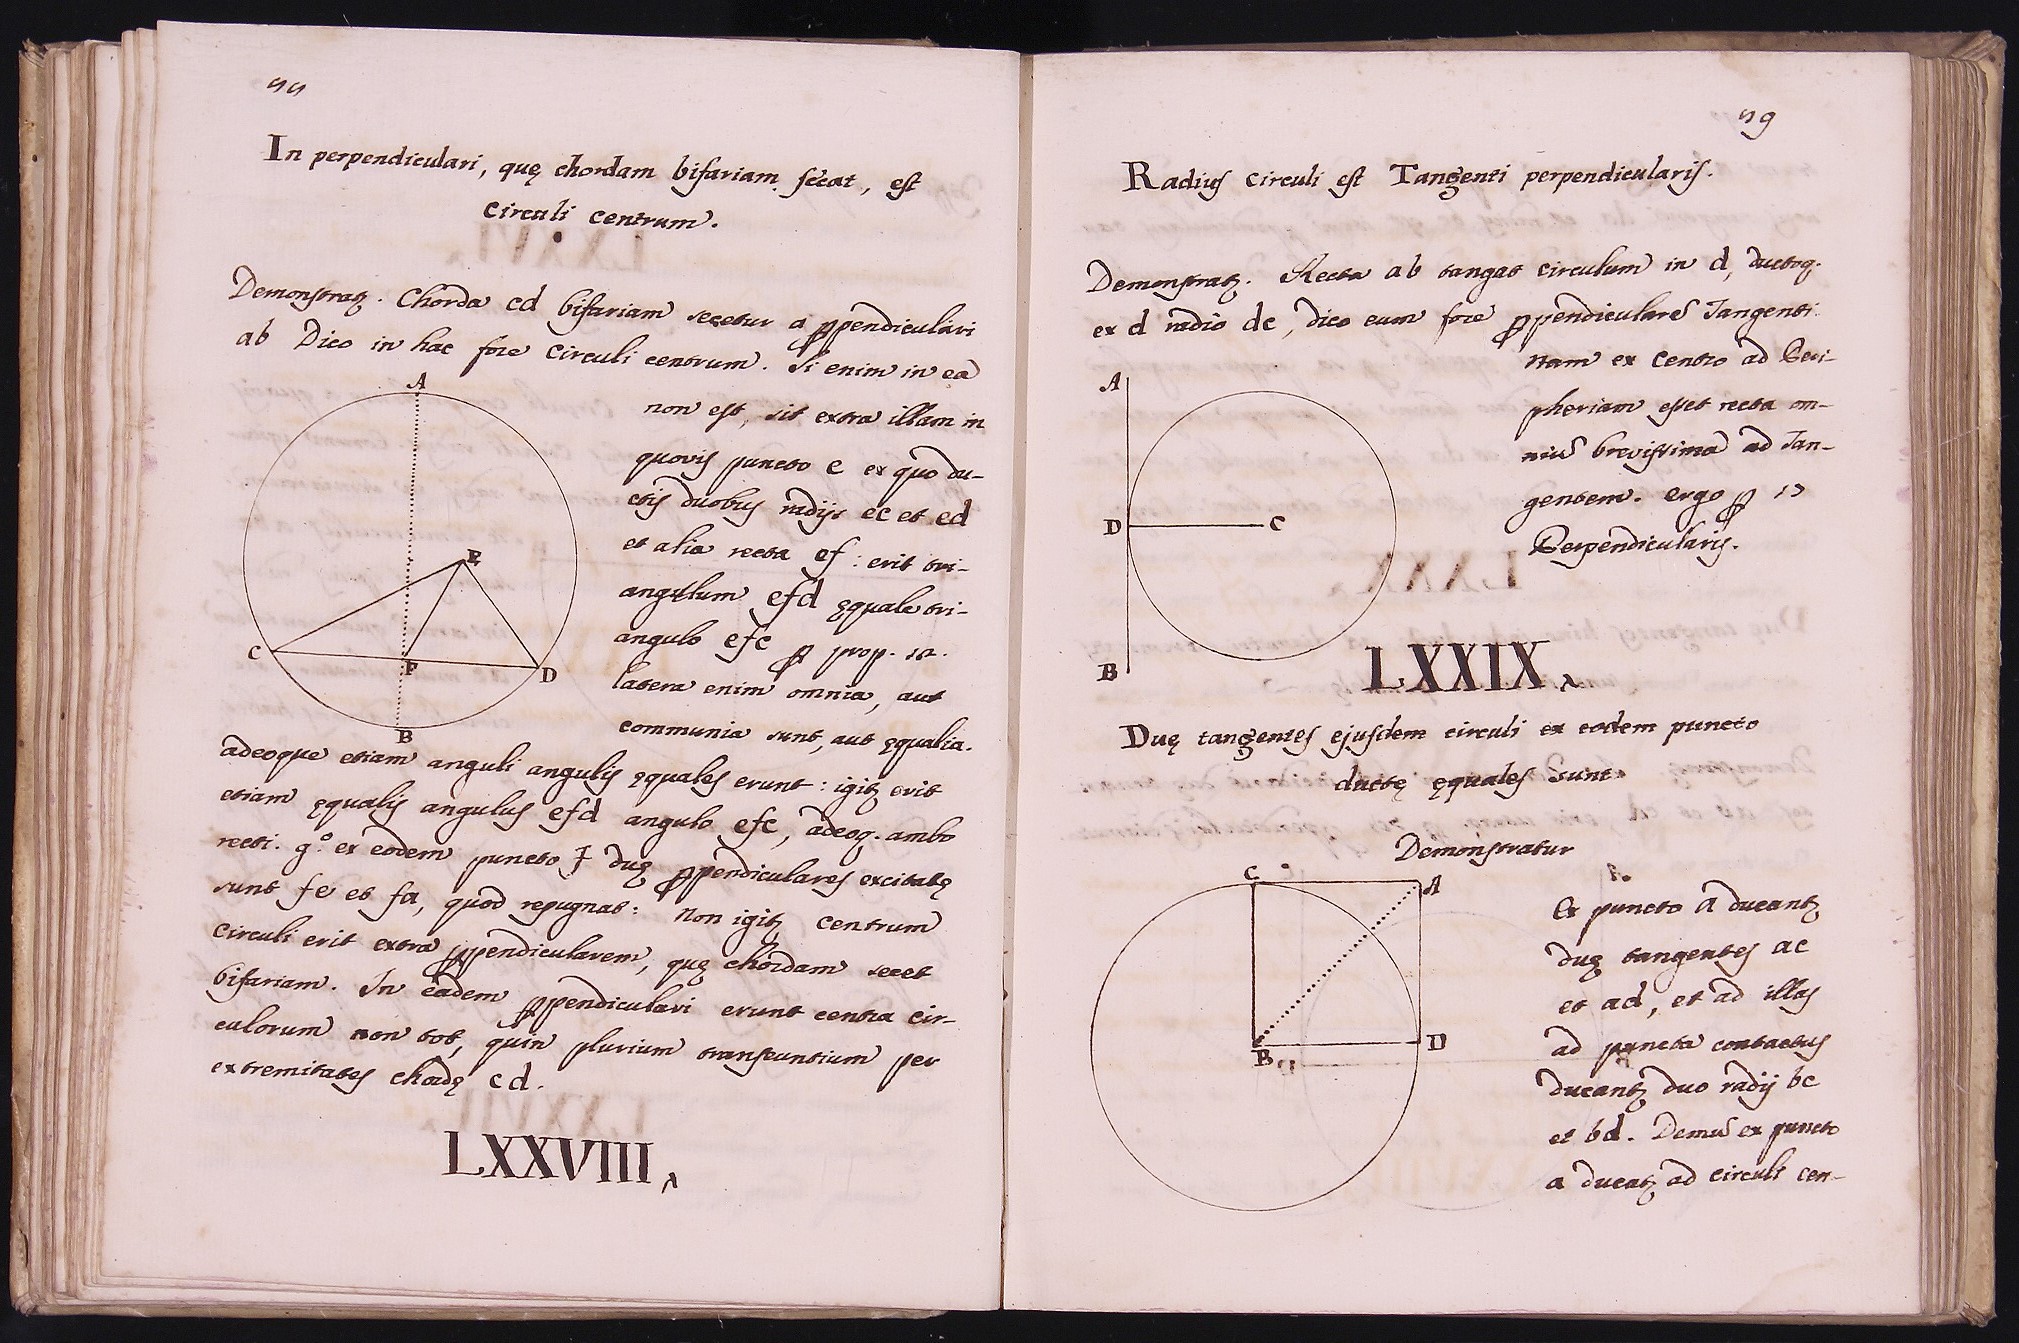 In perpendiculari, quę chordam bifariam secat, est
circuli centrum.
Demonstratꝫ. Chorda cd bifariam secetur a ꝑpendiculari
ab Dico in hac fore circuli centrum. Si enim in ea
A
non est, sit extra illam in
quovis puncto e ex quo du-
ctis duobus radijs ec et ed
et alia recta ef: erit tri-
angulum efd ęquale tri-
angulo efc ꝑ prop.
latera enim omnia, aut
communia sunt, aut ęqualia.
E
C
F
D
B
adeoque etiam anguli angulis ęquales erunt: igitꝫ erit
etiam ęqualis angulus efd angulo efc, adeoq. ambo
recti. gº ex eodem puncto f duę ꝑpendiculares excitatę
sunt fe et fa, quod repugnat: Non igitꝫ centrum
circuli erit extra ꝑpendicularem, quę chordam secet
bifariam. In eadem ꝑpendiculari erunt centra cir-
culorum non tot, quin plurium transeuntium per
extremitates chordę cd.
LXXVIII
Radius circuli est Tangenti perpendicularis.
Demonstratꝫ. Recta ab tangat circulum in d, ductoq.
ex d radio dc, dico eum fore ꝑpendicularē Tangenti
nam ex centro ad Peri-
pheriam esset recta om-
niū brevissima ad Tan-
gentem. ergo ꝑ
Perpendicularis.
A
D
C
B
LXXIX
Duę tangentes ejusdem circuli ex eodem puncto
ductę ęquales sunt
Demonstratur
C
A
B
D
Ex puncto a ducantꝫ
duę tangentes ac
et ad, et ad illas
ad puncta contactus
ducantꝫ duo radij bc
et bd. Demū ex puncto
a ducatꝫ ad circuli cen-